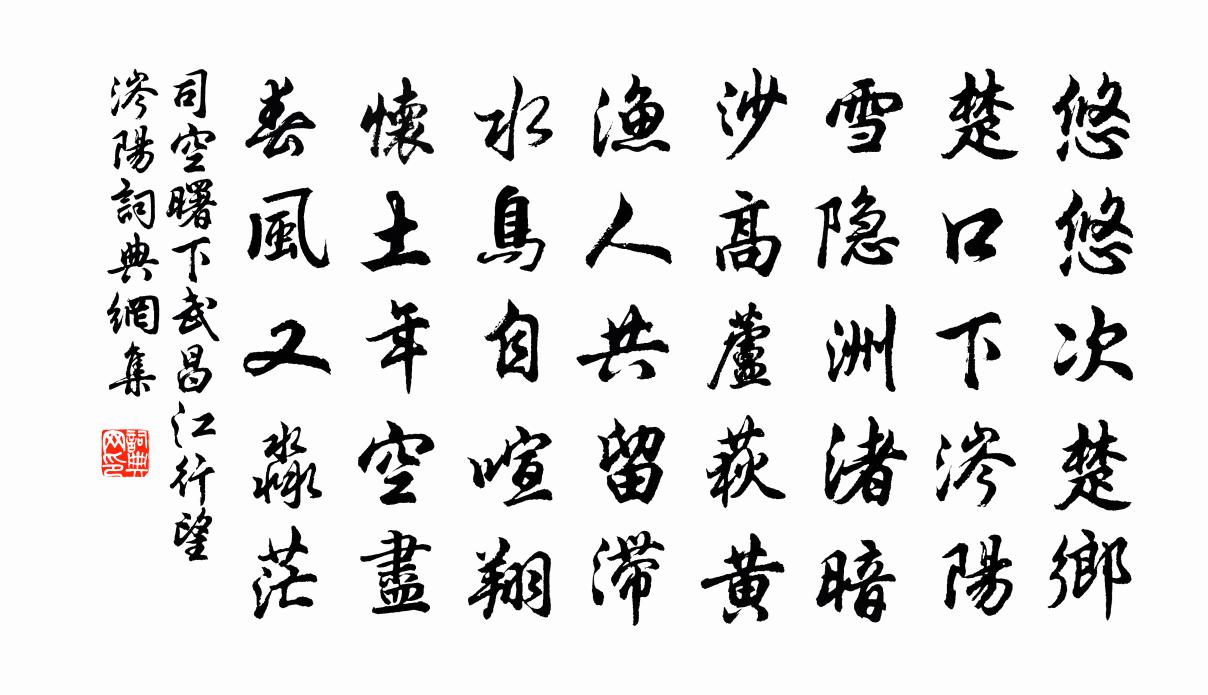 悠悠次楚鄉
楚口下涔陽
雪隐洲渚暗
沙高蘆荻黄
漁人共留滯
水鳥自喧翔
懷土年空盡
春風又淼茫
司空曙下武昌江行望
涔陽詞典網集
詞典
网印